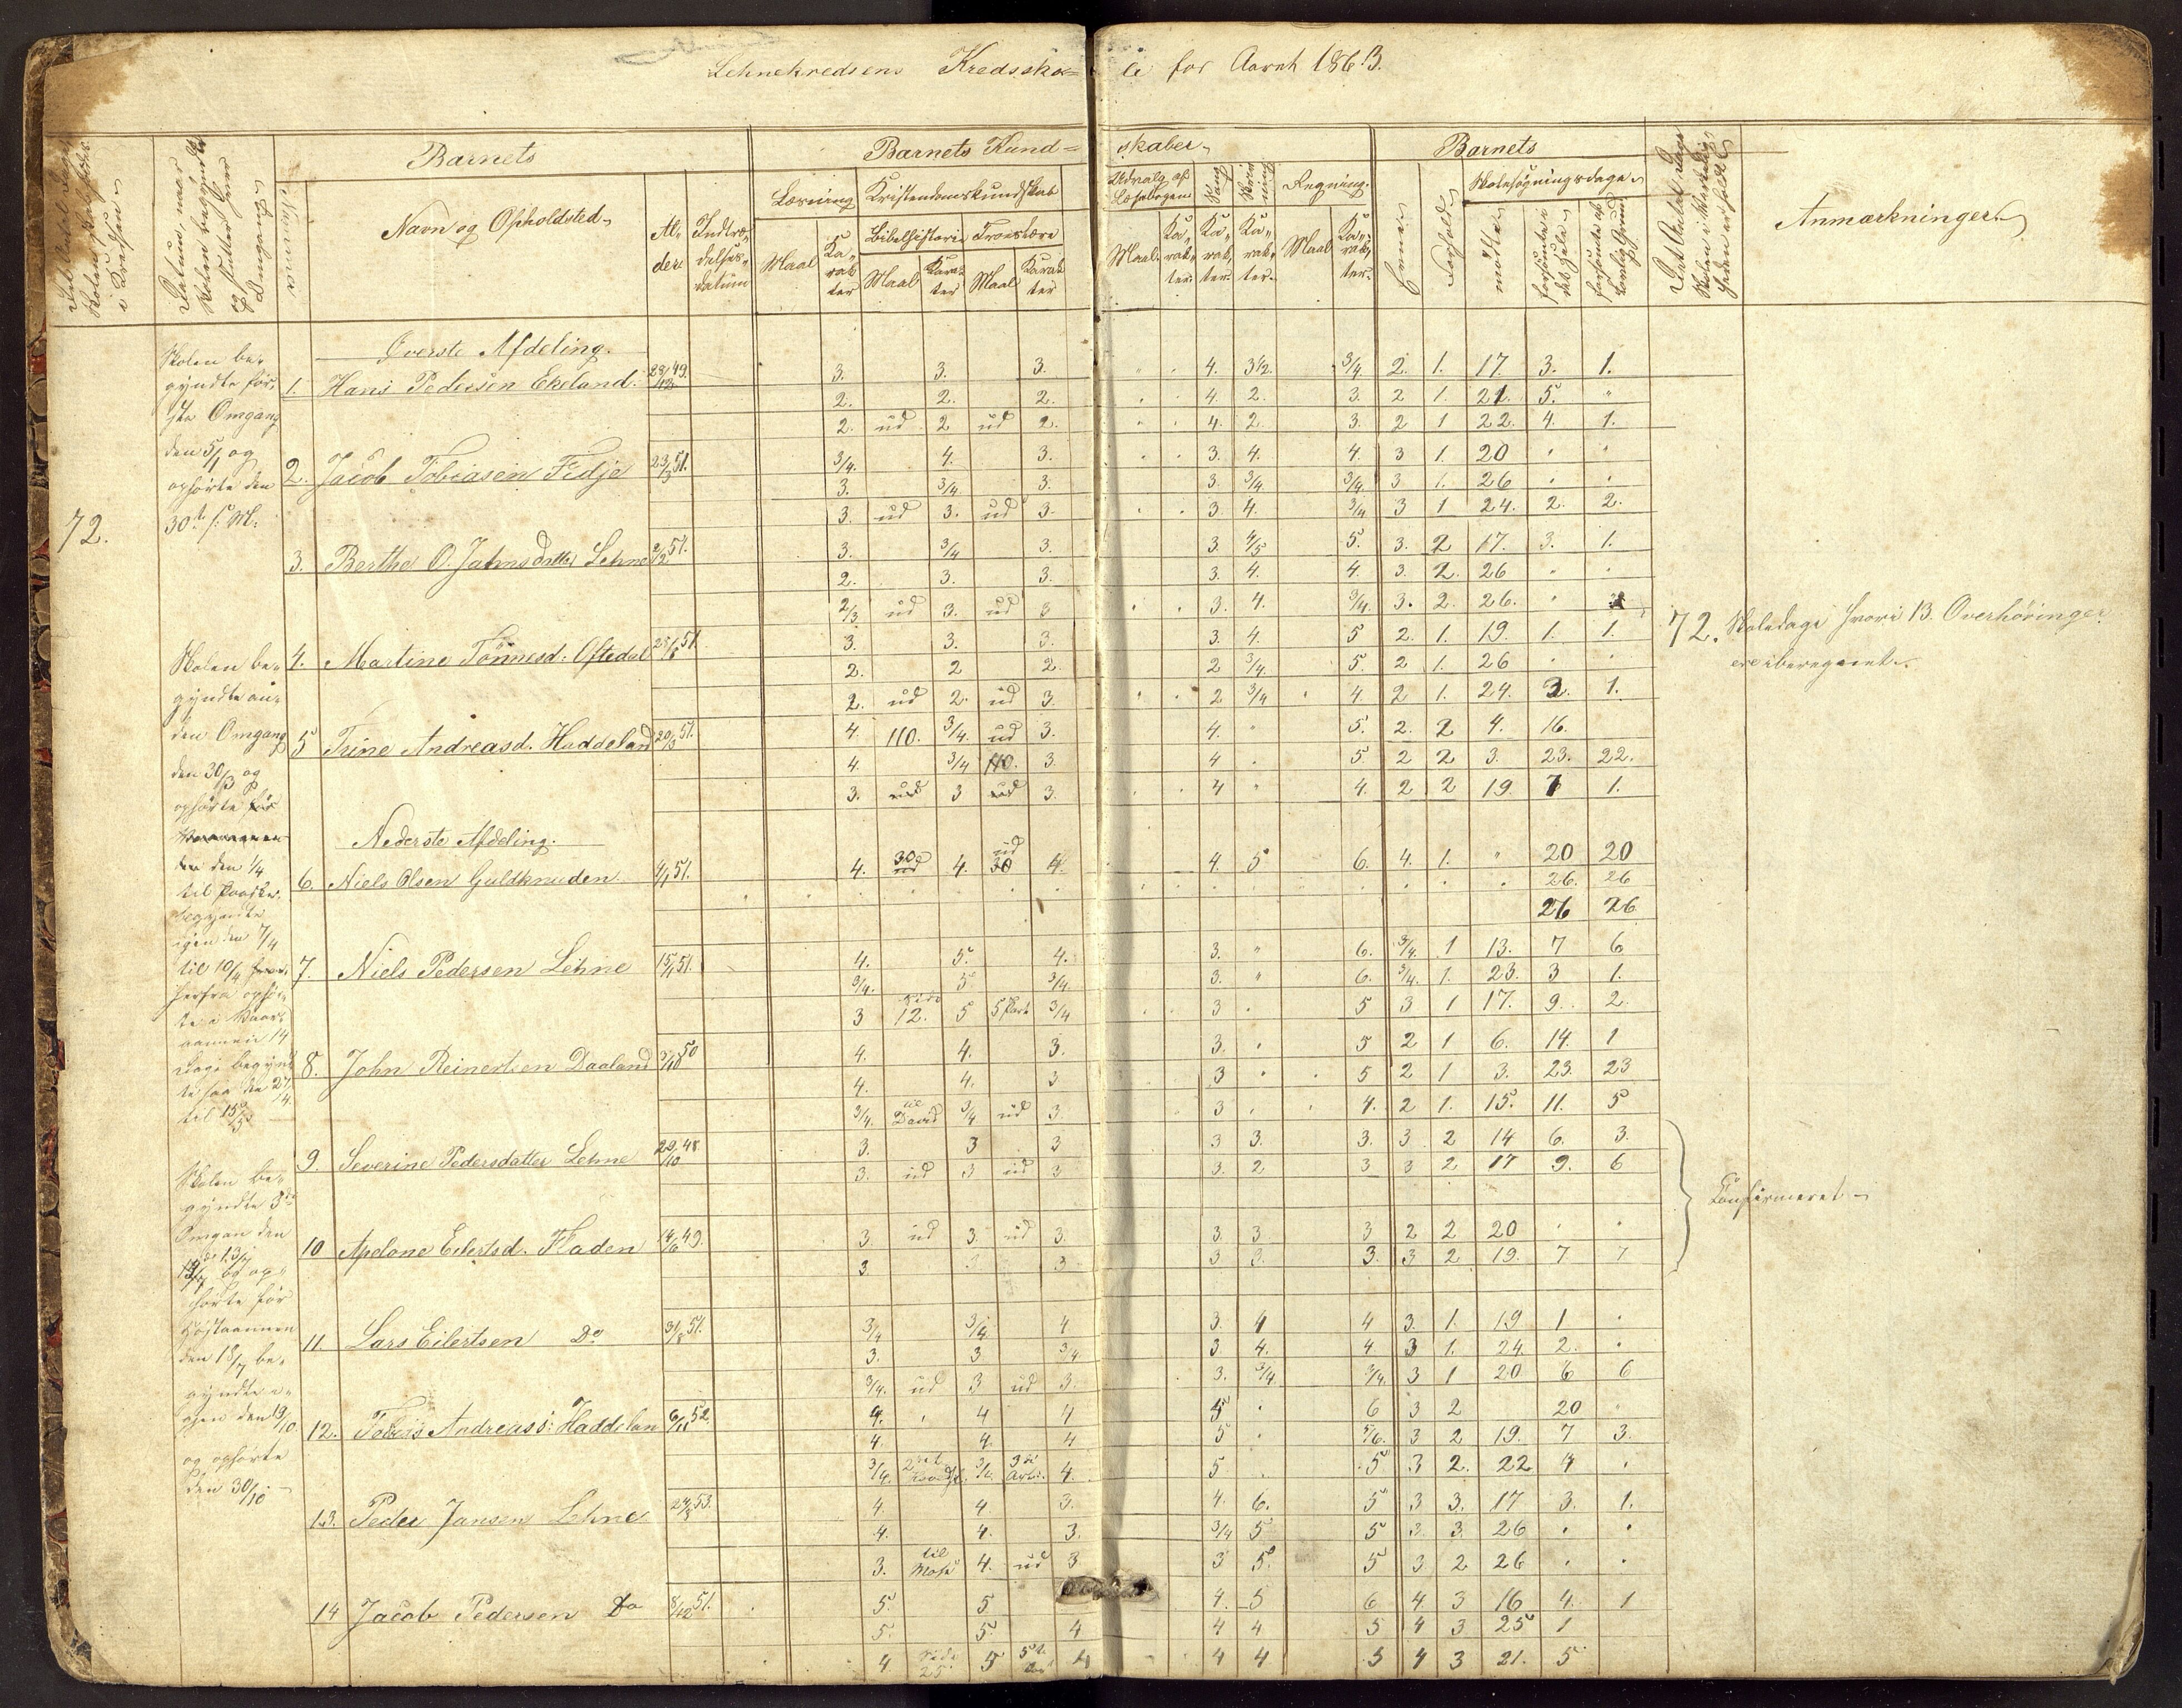 Lehnekredsens Kredsskole for Aaret 1863.
Barnets
Barnets Kundskaber
Barnets
Datum, naar Skolen begyndte og slutter hver Omgang
Nummer
Navn og Opholdsted
Alder
Indtrædelsesdatum
Læsning
Kristendomskundskab
Udvalg af Læsebogen
Sang
Skrivning
Regning
Evner
Forhold
Skolesøgningsdage
Anmærkninger
Bibelhistorie
Troeslære
Maal
Karakter
Maal
Karakter
Maal
Karakter
Maal
Karakter
Karakter
Karakter
Maal
Karakter
mødte
forsømte i det Hele
forsømte af lovlig Grund
Øverste Afdeling.
1. Hans Pedersen Ekeland. 3. 3. 3. 4. 3½. 3/4. 2. 1. 17. 3. 1.
2. 2. 2. 4. 2. 3. 2 1. 21. 5. "
2. ud 2 ud 2. 4. 2 3. 2 1 22. 4. 1.
2. Jacob Tobiasen Fidje 23/3 51. 3/4. 4. 3. 3. 4. 4. 3 1. 20
3. 3/4. 3. 3. 3/4 3/4 3 1. 26
3. ud 3. ud 3. 3. 4. 3/4 3 1 24. 2. 2.
3. Berthe O. Jahnsdatter Lehne 51. 3. 3/4 3. 3. 4/5 5. 3. 2 17. 3. 1.
2. 3. 3. 3. 4. 4. 3. 2. 26
2/3 ud 3. ud 3 3. 4. 3/4. 3. 2. 26.
4. Martine Tønnesd: Oftedal 51. 3. 3. 3. 3. 4. 5 2. 1. 19. 1. 1.
2. 2 2. 2 3/4. 5. 2 1. 26
2. ud 2. ud 3. 2 3/4 4. 2 1. 24. 2. 1.
5 Trine Andreasd. Haddeland 20/3 51. 4. 110. 3/4. ud 3. 4. " 5. 2. 2 4. 16.
4. 3/4 110. 3. 4 5 2 2 3. 23. 22.
3. ud 3 ud 3. 4 " 4. 2 2 19. 7 1.
Nederste Afdeling.
6. Niels Olsen Guldknuden 4/1 51. 4. 30 4. 30 4. 4 5 6. 4. 1. " 20 20
26. 26
26 26
7. Niels Pedersen Lehne 15/1 51. 4. 5. 4. 3. " 6. 3/4. 1 13. 7 6
3/4. 5 3/4. 3. " 6. 3/4. 1. 23. 3 1.
3 Side 12. 5 5 Part 3/4 3 5 3 1 17. 9. 2.
8. John Reinertsen Daaland 50 4. 4. 3. 3. 5 2 1 6. 14. 1
4. 4. 3 3 5 2 1 3. 23. 23
3/4. til David 3/4 ud 3. 3 4. 2 1. 15. 11. 5
9. Severine Pedersdatter Lehne 29/10 48. 3. 3 3 3 3. 3. 3 2 14 6. 3.
3. ud 3 ud 3 3. 2 3 3 2 17 9. 6
10 Apelone Eilertsd. Fladen 14/6 49. 3. ud 3. ud 3. 3. 3 3 2 2 20
3. 3 3 3 3. 3. 3 2 19. 7 7
Confirmeret
11. Lars Eilertsen Do 31/8 51. 3/4 3/4. 4 3. 4 4 3. 1. 19 1
3. 3. 3/4 3 4. 4 3 1. 24. 2.
3/4. ud 3 ud 3. 3. 3/4 3/4. 3 1 20 6 6
12. Tobias Andreass: Haddelan 6/11 52. 4. 4 4 5 6 3 2 20
4. 4. 4 5 5/6. 3 2 19. 7 3.
3/4. 3 Art. 4. 5 5 3 2. 22 4
13. Peder Jansen Lehne 53. 4. 4 3. 4. 6. 5 3 3. 17 3. 1.
4. 4. 3. 3/4 5 5 3. 3. 26
3. til Mose 4. ud 3 3 5. 5 3 2 26
14 Jacob Pedersen Do 8/12 51. 5. 5 4. 5 6 4 3 16 4. 1
5. 5. 4 4 4 5 4 3 25 1
4 Side 25 5 4 4 4 5 4 3 21. 5
72.
Skolen begyndte første Omgang
den 5/1 og
ophørte den
30te s: M:
Skolen begyndte anden Omgang
den 30/3 og
ophørte
den 1/4
til Paaske.
begyndte
igen den 7/4
til 10/4
Skolen begyndte 3die
Omgan den
og ophørte før
Høstaannen
den 18/7 begyndte
igjen den 19/10.
og ophørte
den 30/10
72. Skoledage hvori 13 Overhøringer
ere iberegnet.